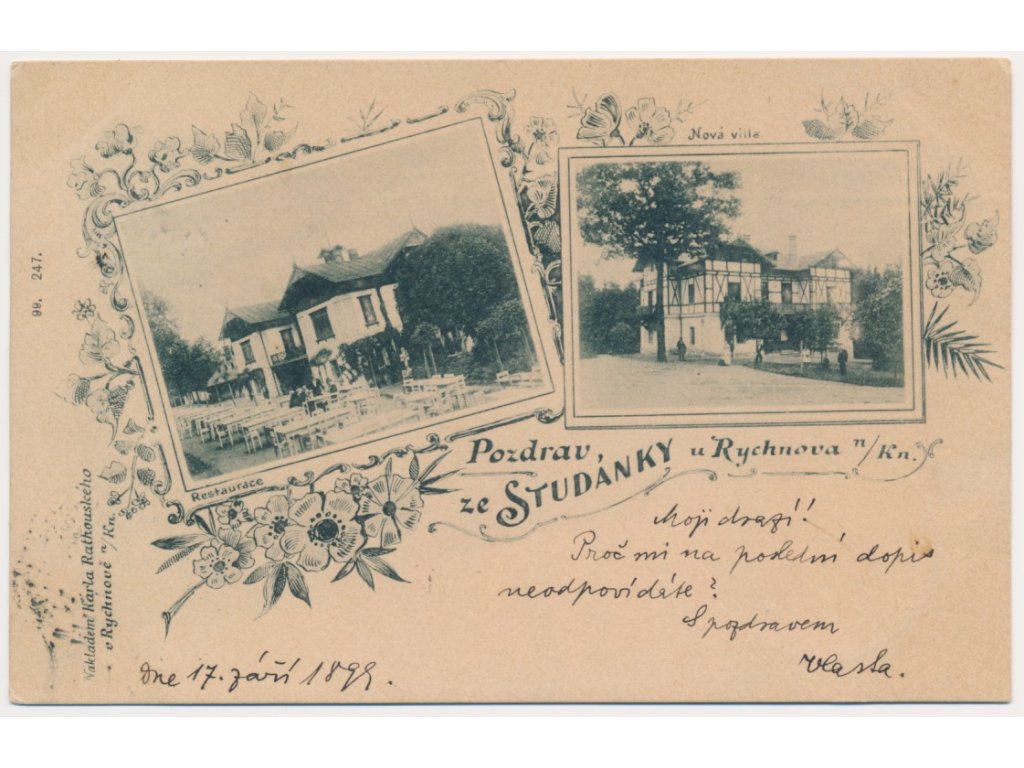 Nová villa
99. 247.
Restaurace
Pozdrav,
ze STUDÁNKY u Rychnova n/Kn.
Nakladem Karla Rathouského
v Rychnově n/Kn.
Moji drazí!
Proč mi na poslední dopis
neodpovídáte?
S pozdravem
Vlasta.
Dne 17. září 1899.